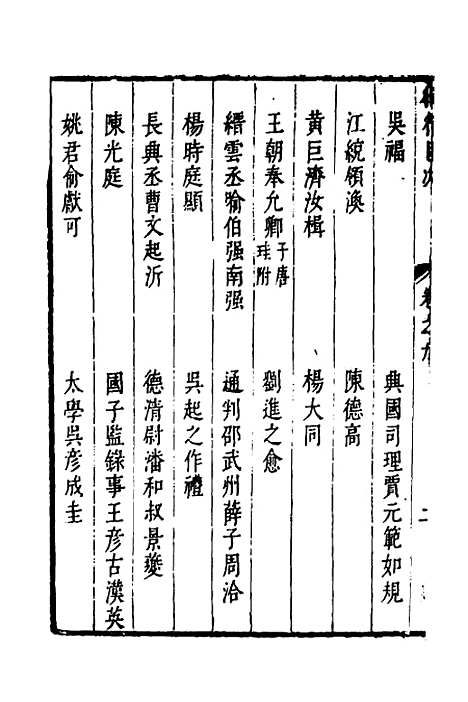 卷之九
二
吳福 典國司理賈元範如規
江統領渙 陳德高
黃巨濟汝楫 楊大同
王朝奉允卿子唐珪附 劉進之愈
縉雲丞喻伯强南强 通判邵武州薛子周洽
楊時庭顯 吳起之作禮
長典丞曹文起沂 德清尉潘和叔景夔
陳光庭 國子監錄事王彥古漢英
姚君俞獻可 太學吳彥成圭